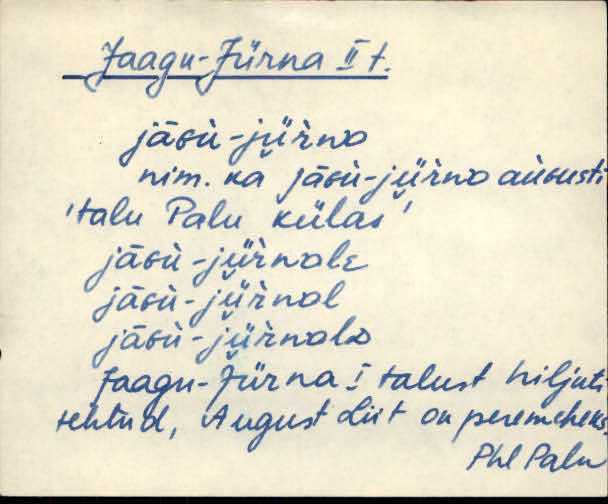 Jaagu-Jürna II t.
jāɢù-jǜrnɒ
nim. ka jāɢù-jǜrnɒ aùɢusti
'talu Palu külas'
jāɢù-jǜrnɒle
jāɢù-jǜrnɒl
jāɢù-jǜrnɒlɒ
Jaagu-Jürna I talust hiljuti
tehtud, August Liit on peremeheks.
Phl Palu